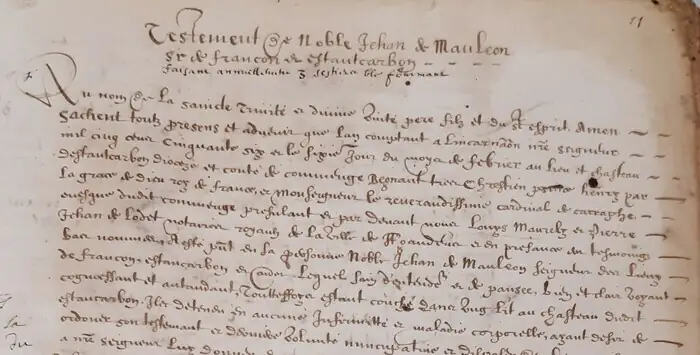 51
Testement de Noble Jehan de Mauleon
Sr de francon et estantcarbon
faisant annuellement 3 sestiers ble fromant
Au nom de la saincte trinité et divine unité pere filz et du St esprit. Amen
Sachent toutz presens et advenir que lan comptant a lincarnaon nre seigneur
mil cinq cens Cinquante six et le sixie Jour du moys de febrier au lieu et chasteau
destantcarbon dioceze et conté de commenge Regnant tres Chrestien prince henry par
la grace de dieu roy de france, et Monseigneur le reverandissime cardinal de carraphe
evesque dudit commenge presulant et par devant nous Louys Maurelz et Pierre
Jehan de Lodet notaires royaulx de la ville de et en presance des tesmoings
bas nommes A esté pnt en sa personne Noble Jehan de Mauleon seigneur des lieux
de francon estantcarbon et Lequel sain d'entende et de pansee, bien et clair voyant
cognoissant et antandant, Touttesfoys estant couché dans ung lit au chasteau dudit
estantcarbon, Illec detenu en aucune Infirmette et maladie corporelle, ayant desir de
ordoner son testament et derniere volunte nuncupative et
a nre seigneur luy donner
la
du